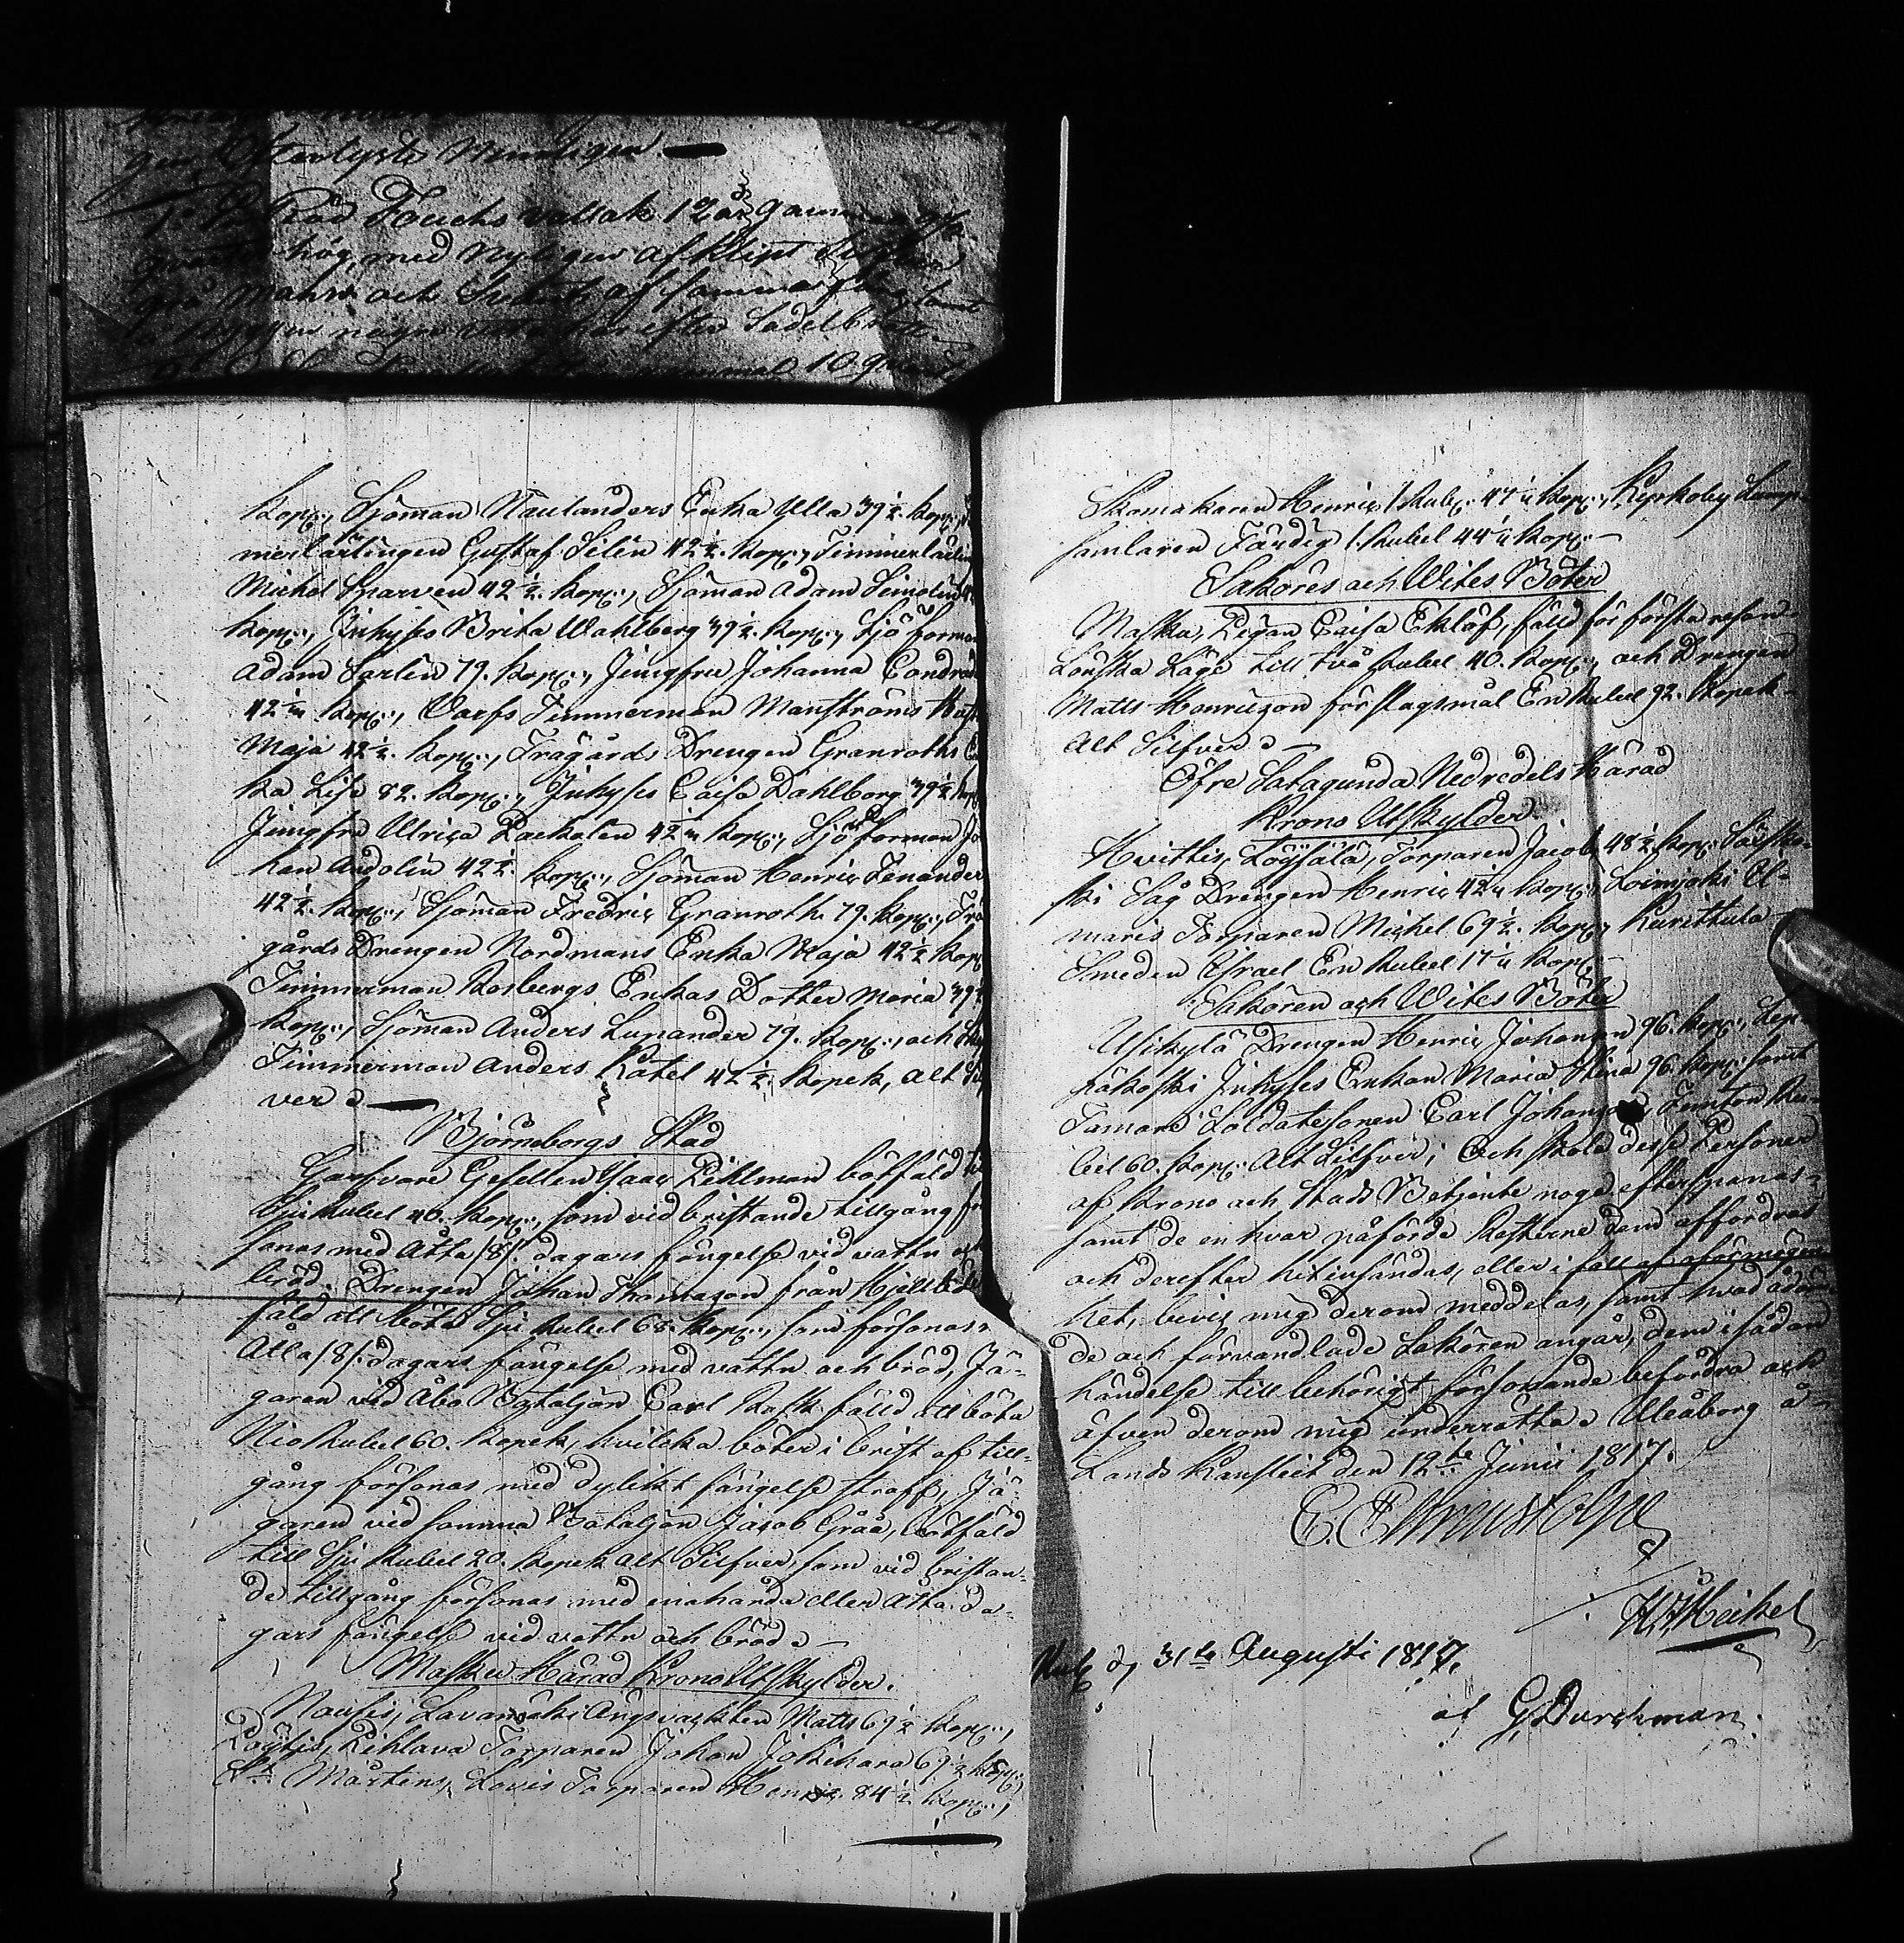 gen Efterlyste Nemligen
1o
Fuchs vallak 12 år gammal 9
qvarter hög, med nyligen afklipt
man och
ryggen några hvita efter Sadelbrott
10 quart
Kop:r, Sjöman Naulanders Enka Ulla 39½. Kop:r,
merlärlingen Gustaf Silén 42½. Kop:r, Timmerlärlin
Michel Sparven 42½. Kop:r, Sjöman Adam Simolin
Kop:r, Inhyses Brita Wahlberg 39½. Kop:r, Sjöforman
Adam Sarlin 79. Kop:r, Jungfru Johanna Condra
42½ Kop:r, Varfs Timmerman Manströms
Maja 42½. Kop:r, Trägårds Drengen Granroths
ka Lisa 82. Kop:r, Inhyses Caisa Dahlborg 39½ Kop
Jungfru Ulrica Packalén 42½ Kop:r, Sjöforman Jo
han Andolin 42½. Kop:r, Sjöman Henric Fenander
42½. Kop:r, Sjöman Fredric Granroth 79. Kop:r, Trä
gårds Drengen Nordmans Enka Maja 42½ Kop
Timmerman Rosbergs Enkas Dotter Maria 39½
Kop:r, Sjöman Anders Lupander 79. Kop:r, och
Timmerman Anders Ratel 42½. Kopek, alt Sil
ver
Björneborgs Stad
Garfvare Gesellen Isaac Pihlman bötfäld til
Sju Rubel 40. Kop:r, som vid bristande tillgång för
sonas med Åtta /8/. dagars fängelse vid vattn och
bröd. Drengen Johan Thomasson från
fäld att böta Sju Rubel 68. Kop:r, som försonas
Åtta /8/. dagars fängelse med vattn och bröd, Jä-
garen vid Åbo Bataljon Carl Rask fälld att böta
Nio Rubel 60. Kopek, hvilcka böter i brist af till-
gång försonas med dylikt fängelse straff, Jä-
garen vid samma Bataljon Jacob Gråå, bötfäld
till Sju Rubel 20. Kopek alt Silfver, som vid bristan-
de tillgång försonas med enahanda eller Åtta da-
gars fängelse vid vattn och bröd
Masku Härad Krono Utskylder.
Nousis, Lavamäki Ängvackten Matts 69½ Kop:r,
Pöytis, Rihlava Torparen Johan Jokihara 69½ Kop:r,
S:t Mårtens, Lovis Torparen Henric 84½ Kop:r,
Skomakaren Henric 1 Rub: 47½ Kop:r, Kyrkoby Lump-
samlaren Färdig 1. Rubel 44½ Kop:r
Saköres och Wites Böter
Masku, Pigan Caisa Eklöf, fälld för första resan
Lönska Läge till två Rubel 40. Kop:r, och Drengen
Matts Henricson för slagsmål En Rubel 92. Kopek
Alt Silfver
Öfre Satagunda Nedredels Härad
Krono Utskylder.
Hvittis, Löysälä, Torparen Jacob 48½ Kop:r
ski Såg Drengen Henric 42½ Kop:r, Loimjoki El-
maris Torparen Michel 69½. Kop:r, Kurittula
Smeden Israel En Rubel 17½ Kop:r
Saköres och Wites Böter
Usikylä Drengen Henric Johansson 96. Kop:r,
käkoski Inhyses Enkan Maria Stina 96. Kop:r samt
Tamare Soldatesonen Carl Johansson, Femton Ru-
bel 60. Kop:r Alt Silfver; Och skola desse Personer
af Krono och Stads Betjente noga efterspanas
samt de en hvar påförde Resterne dem affordras
och derefter hit insändas, eller i fall af oförmögen-
het, bevis mig derom meddelas, samt hvad ådöm-
de och förvandlade Saköres angår, dem i sådan
händelse till behörigt försonande befordra och
äfven derom mig underrätta Uleåborg å
Lands Kansliet den 12te Junii 1817.
E. Ehrnrstolpe
H. Heikel
d. 31te Augusti 1817,
af G. Durchman